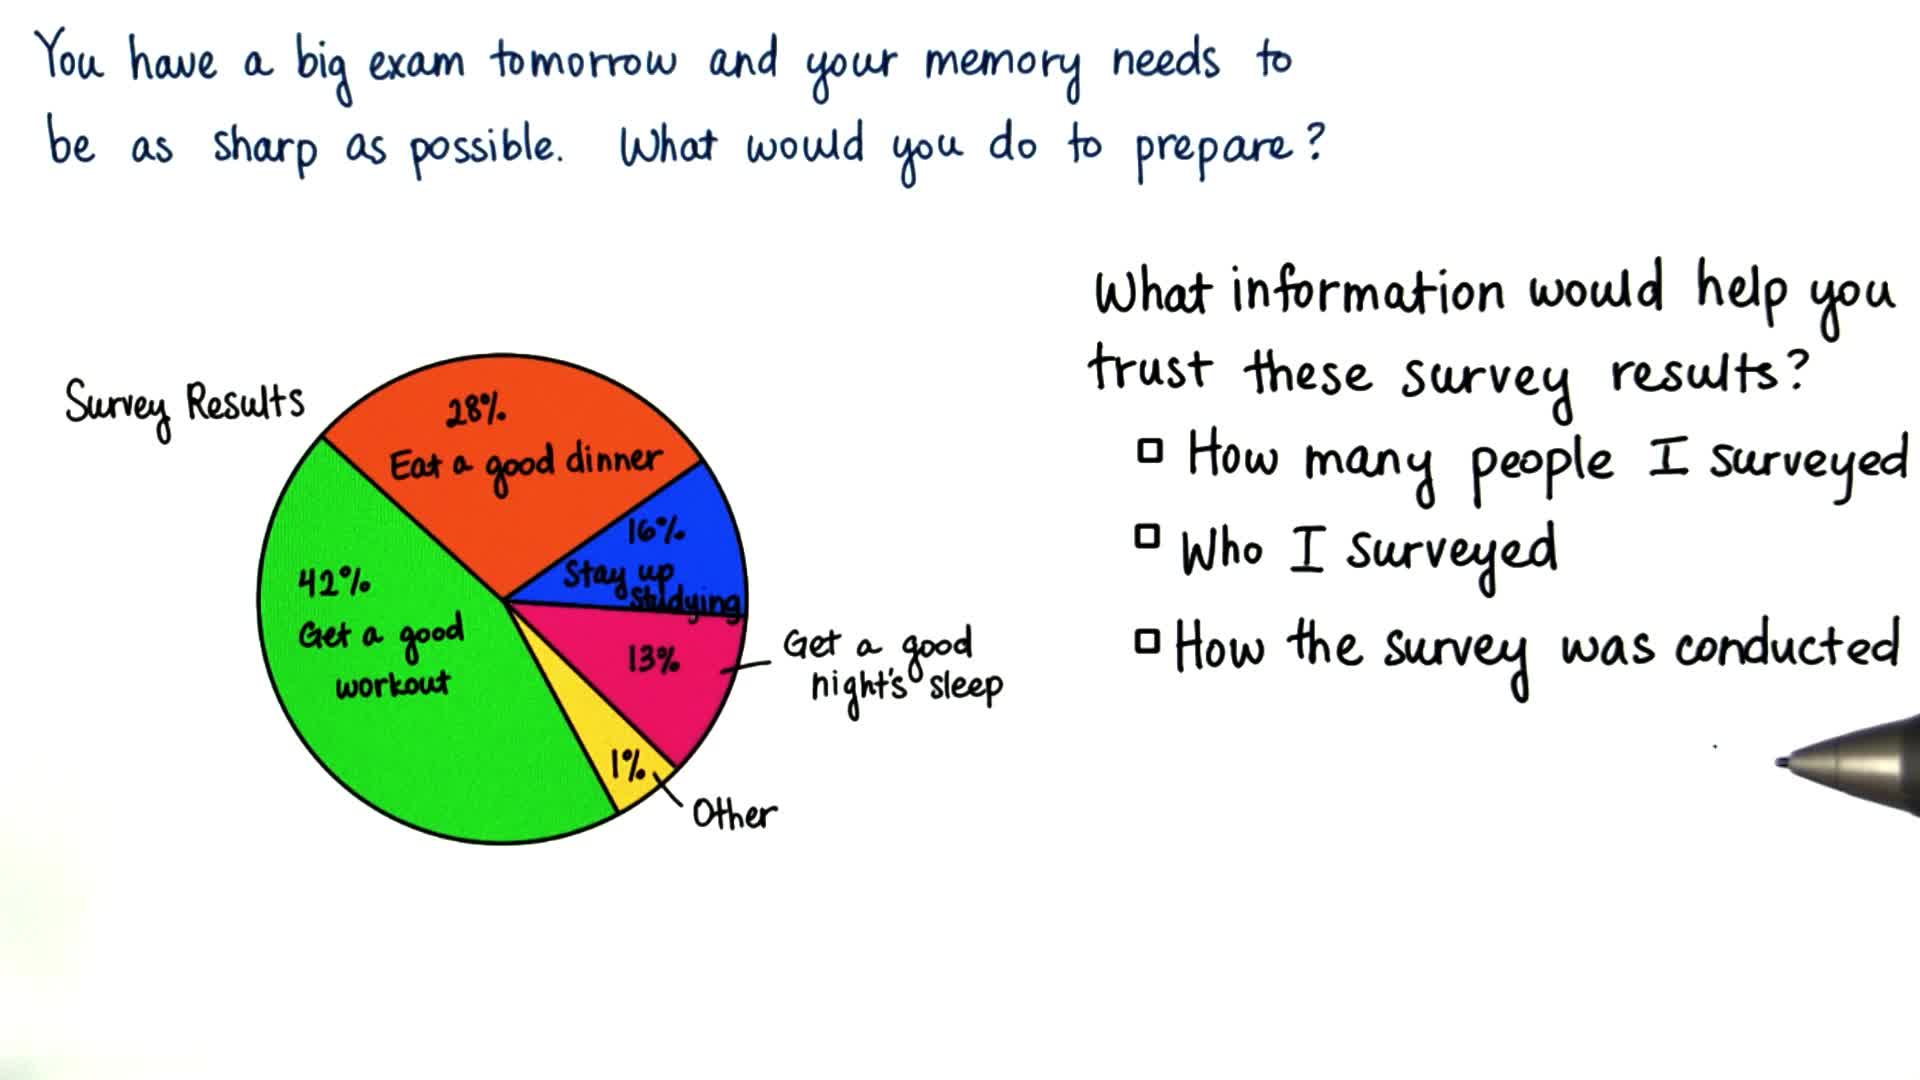 You have a big exam tomorrow and your memory needs to
be as sharp as possible. What would you do to prepare?
Survey Results
28%
Eat a good dinner
16%
Stay up
studying
42%
Get a good
workout
13%
Get a good
night's sleep
1%
Other
What information would help you
trust these survey results?
How many people I surveyed
Who I surveyed
How the survey was conducted